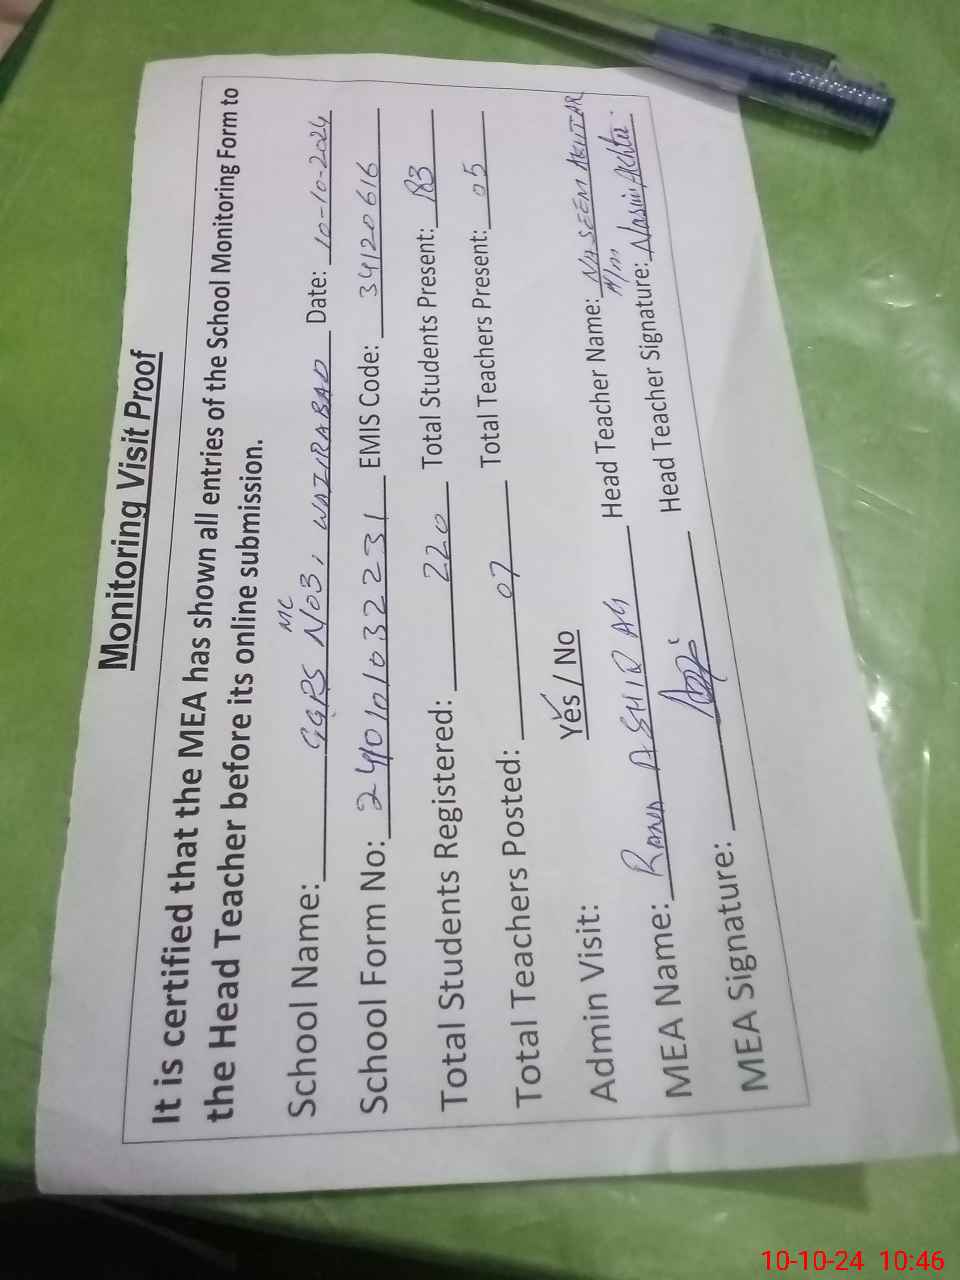 Monitoring Visit Proof
It is certified that the MEA has shown all entries of the School Monitoring Form to
the Head Teacher before its online submission.
MC
School Name: GGPS No3, WAZIRABAD Date: 10-10-2024
School Form No: 24101032231 EMIS Code: 34120616
Total Students Registered: 220 Total Students Present: 183
Total Teachers Posted: 07 Total Teachers Present: 05
Admin Visit: Yes / No
MEA Name: RANA ASHIQ Ali Head Teacher Name: NASEEM AKHTAR
H/m
MEA Signature: Head Teacher Signature: Nasim Akhtar
10-10-24 10:46